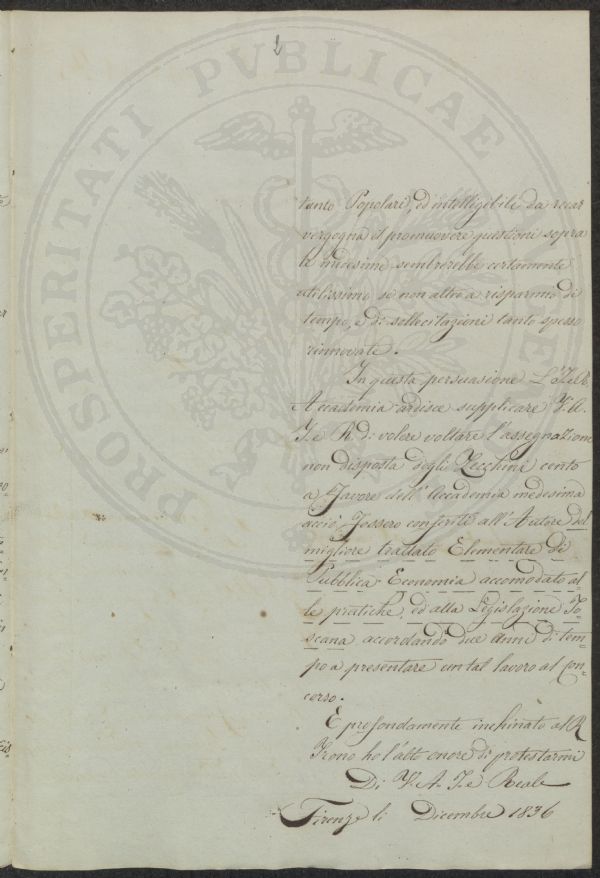 PROSPERITATI PVBLICAE
tanto Popolari, ed intelligibili da recar
vergogna il promuovere questioni sopra
le medesime sembrerebbe certamente
utilissimo se non altro a risparmio di
tempo, e di sollecitazioni tanto spesso
rinnovate.
In questa persuasione L'I. e R.
Accademia ardisce supplicare V. A.
I. e R. di volere voltare l'assegnazione
non disposta degli Zecchini cento
a Favore dell'Accademia medesima
acciò Fossero conferiti all'Autore del
migliore trattato Elementare di
Pubblica Economia accomodato al
le pratiche, ed alla Legislazione To=
scana accordando due anni di tem=
po a presentare un tal lavoro al Con=
corso.
E profondamente inchinato al R.
Trono ho l'alto onore di protestarmi
Di V. A. I. e Reale
Firenze li Dicembre 1836